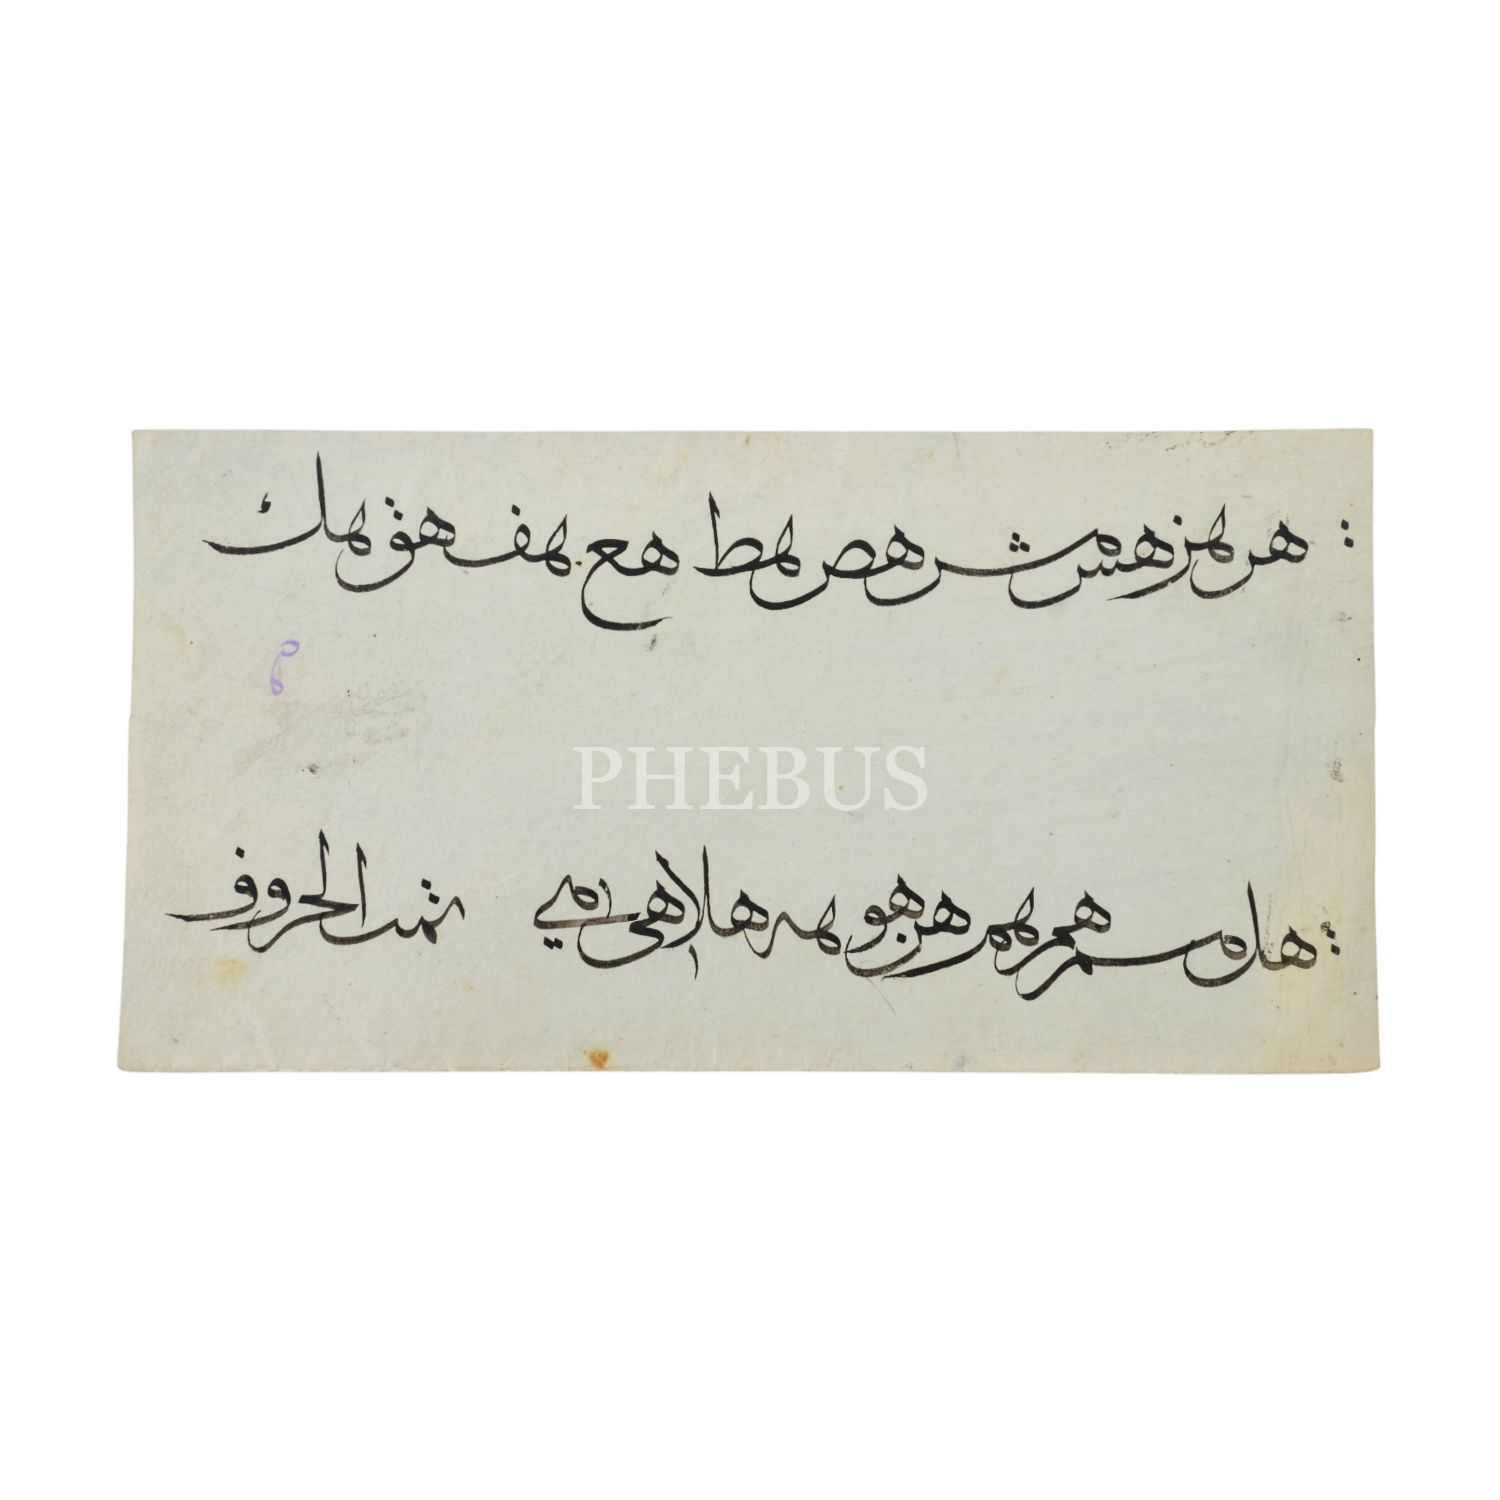 هر هز هس هش هص هط هع هف هق هك
PHEBUS
هل هم هن هو هه هلا هى تمت الحروف